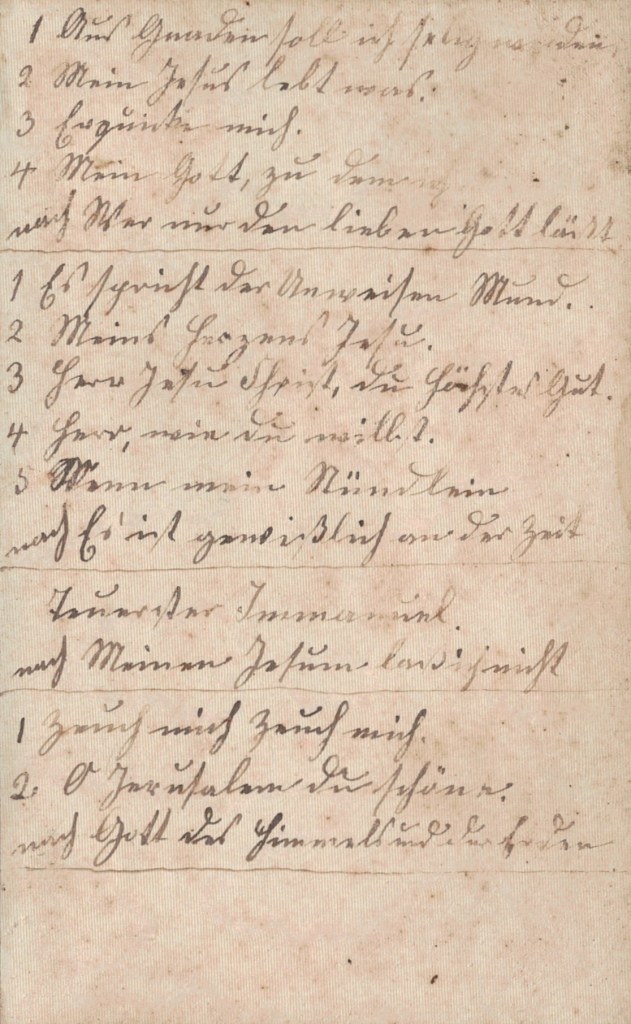 1 Aus Gnaden soll ich selig werden,
2 Mein Jesus lebt was.
3 Erquicke mich.
4 Mein Gott, zu dem
nach Wer nur den lieben Gott läßt
1 Es spricht der Unweisen Mund.
2 Meins Herzens Jesu.
3 Herr Jesu Christ, du höchstes Gut.
4 Herr, wie du willst.
5 Wenn mein Stündlein
nach Es ist gewißlich an der Zeit
Teuerster Immanuel.
nach Meinen Jesum laß ich nicht
1 Zeuch mich Zeuch mich.
2. O Jerusalem du schöne.
nach Gott des Himmels und der Erden